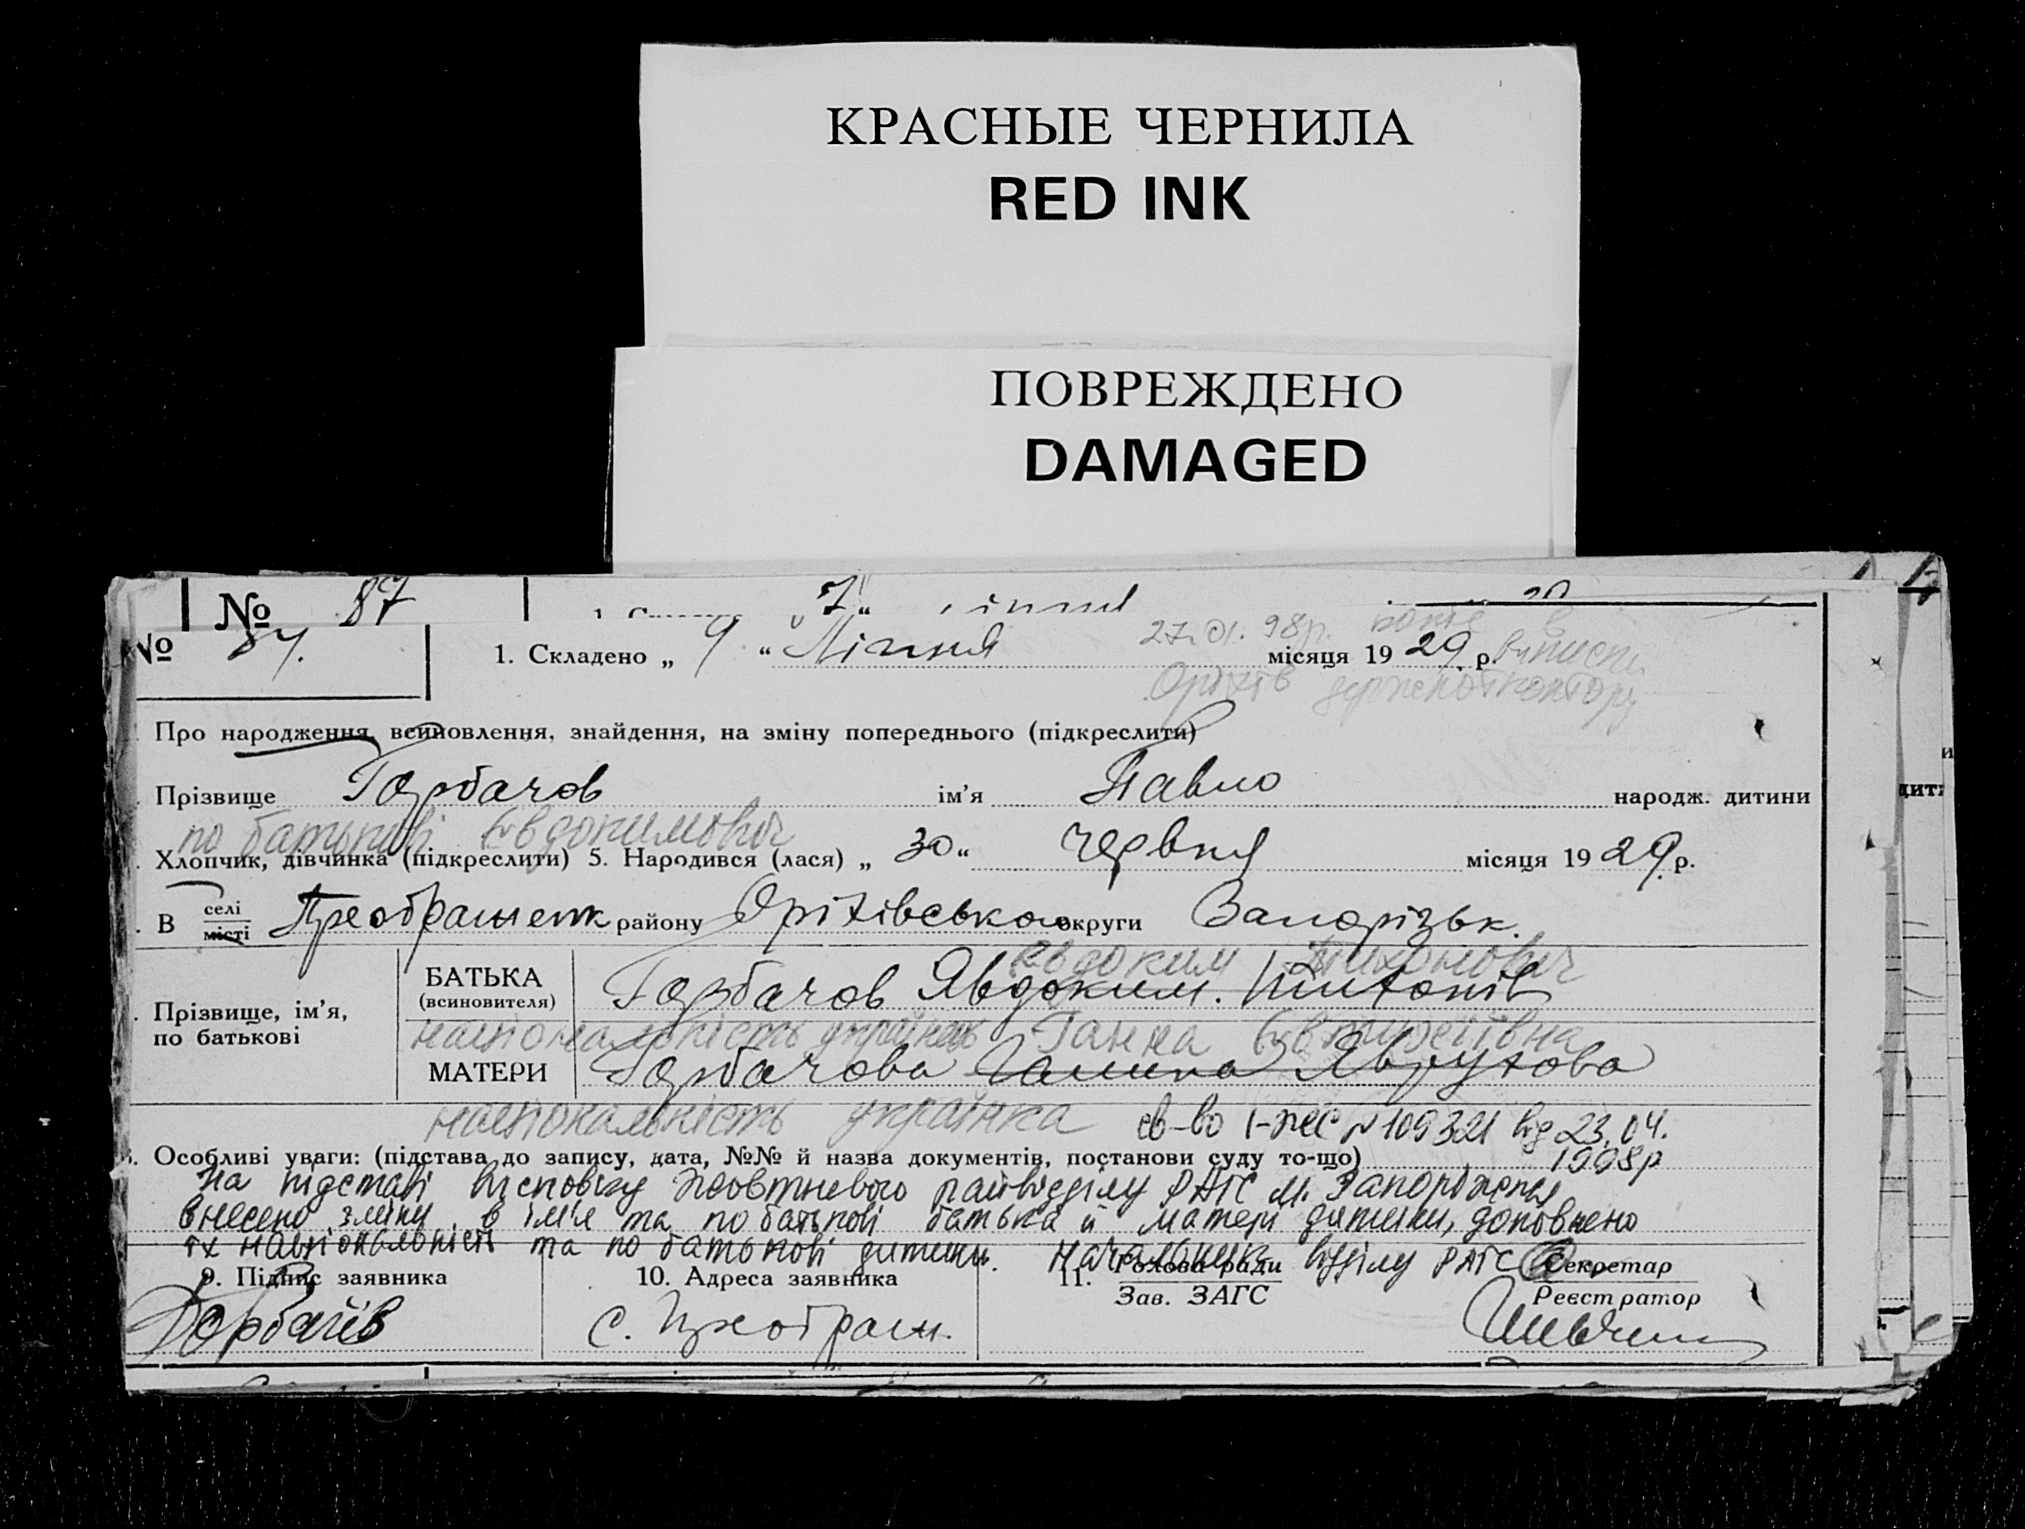 КРАСНЫЕ ЧЕРНИЛА
RED INK
ПОВРЕЖДЕНО
DAMAGED
№ 87 7
№ 84. 1. Складено „ 9 “ Липня місяця 19 29 р.
27.01.98р. копія в
виписки
Оріхів
Про народження, всиновлення, знайдення, на зміну попереднього (підкреслити)
Прізвище Горбачов ім'я Павло народж. дитини
по батькові Євдокимович
Хлопчик, дівчинка (підкреслити) 5. Народився (лася) „ 30 “ червня місяця 19 29 р.
В селі місті Преображенк району Оріхівсько округи Запорізьк.
Євдоким Тихонович
Прізвище, ім'я, по батькові
БАТЬКА (всиновителя) Горбачов Явдоким.
національність українець Ганна
МАТЕРИ Горбачова Галина
національність українка св-во І-ЖС №109321 від 23.04.
1998р
Особливі уваги: (підстава до запису, дата, №№ й назва документів, постанови суду то-що)
На підставі висновку Жовтневого райвідділу РАГС м. Запоріжжя
внесено зміни в ім'я та по батькові батька й матері дитини, доповнено
їх національність та по батькові дитини. Начальник відділу РАГС
9. Підпис заявника 10. Адреса заявника 11. Голова ради Секретар
Зав. ЗАГС Реєстратор
с. Преображ.